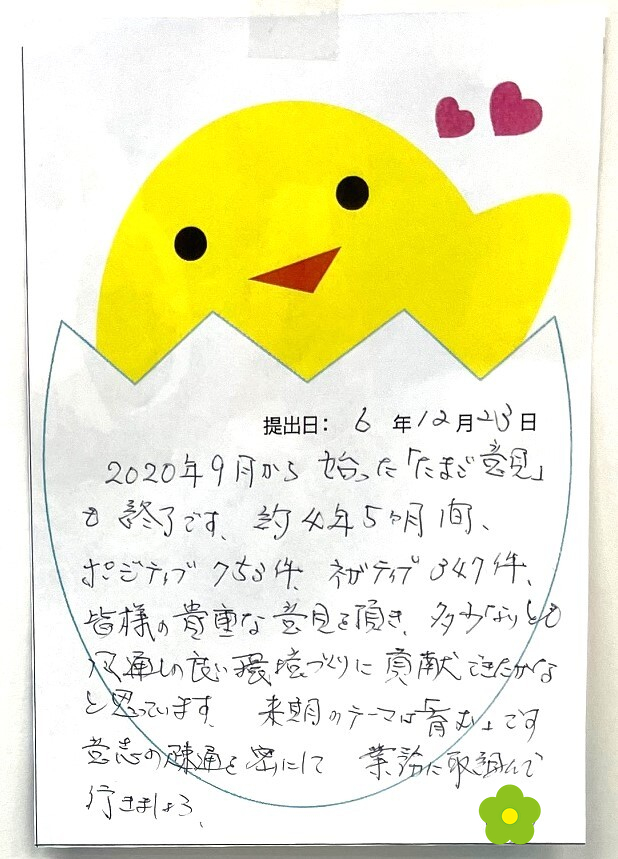 提出日: 6年12月23日
2020年9月から始った「たまご意見」
も終了です、約4年5ヶ月間、
ポジティブ753件、ネガティブ347件、
皆様の貴重な意見を頂き、多少なりとも
風通しの良い環境づくりに貢献できたかな
と思っています、来期のテーマは「育む」です
意志の疎通を密にして 業務に取組んで
行きましょう、